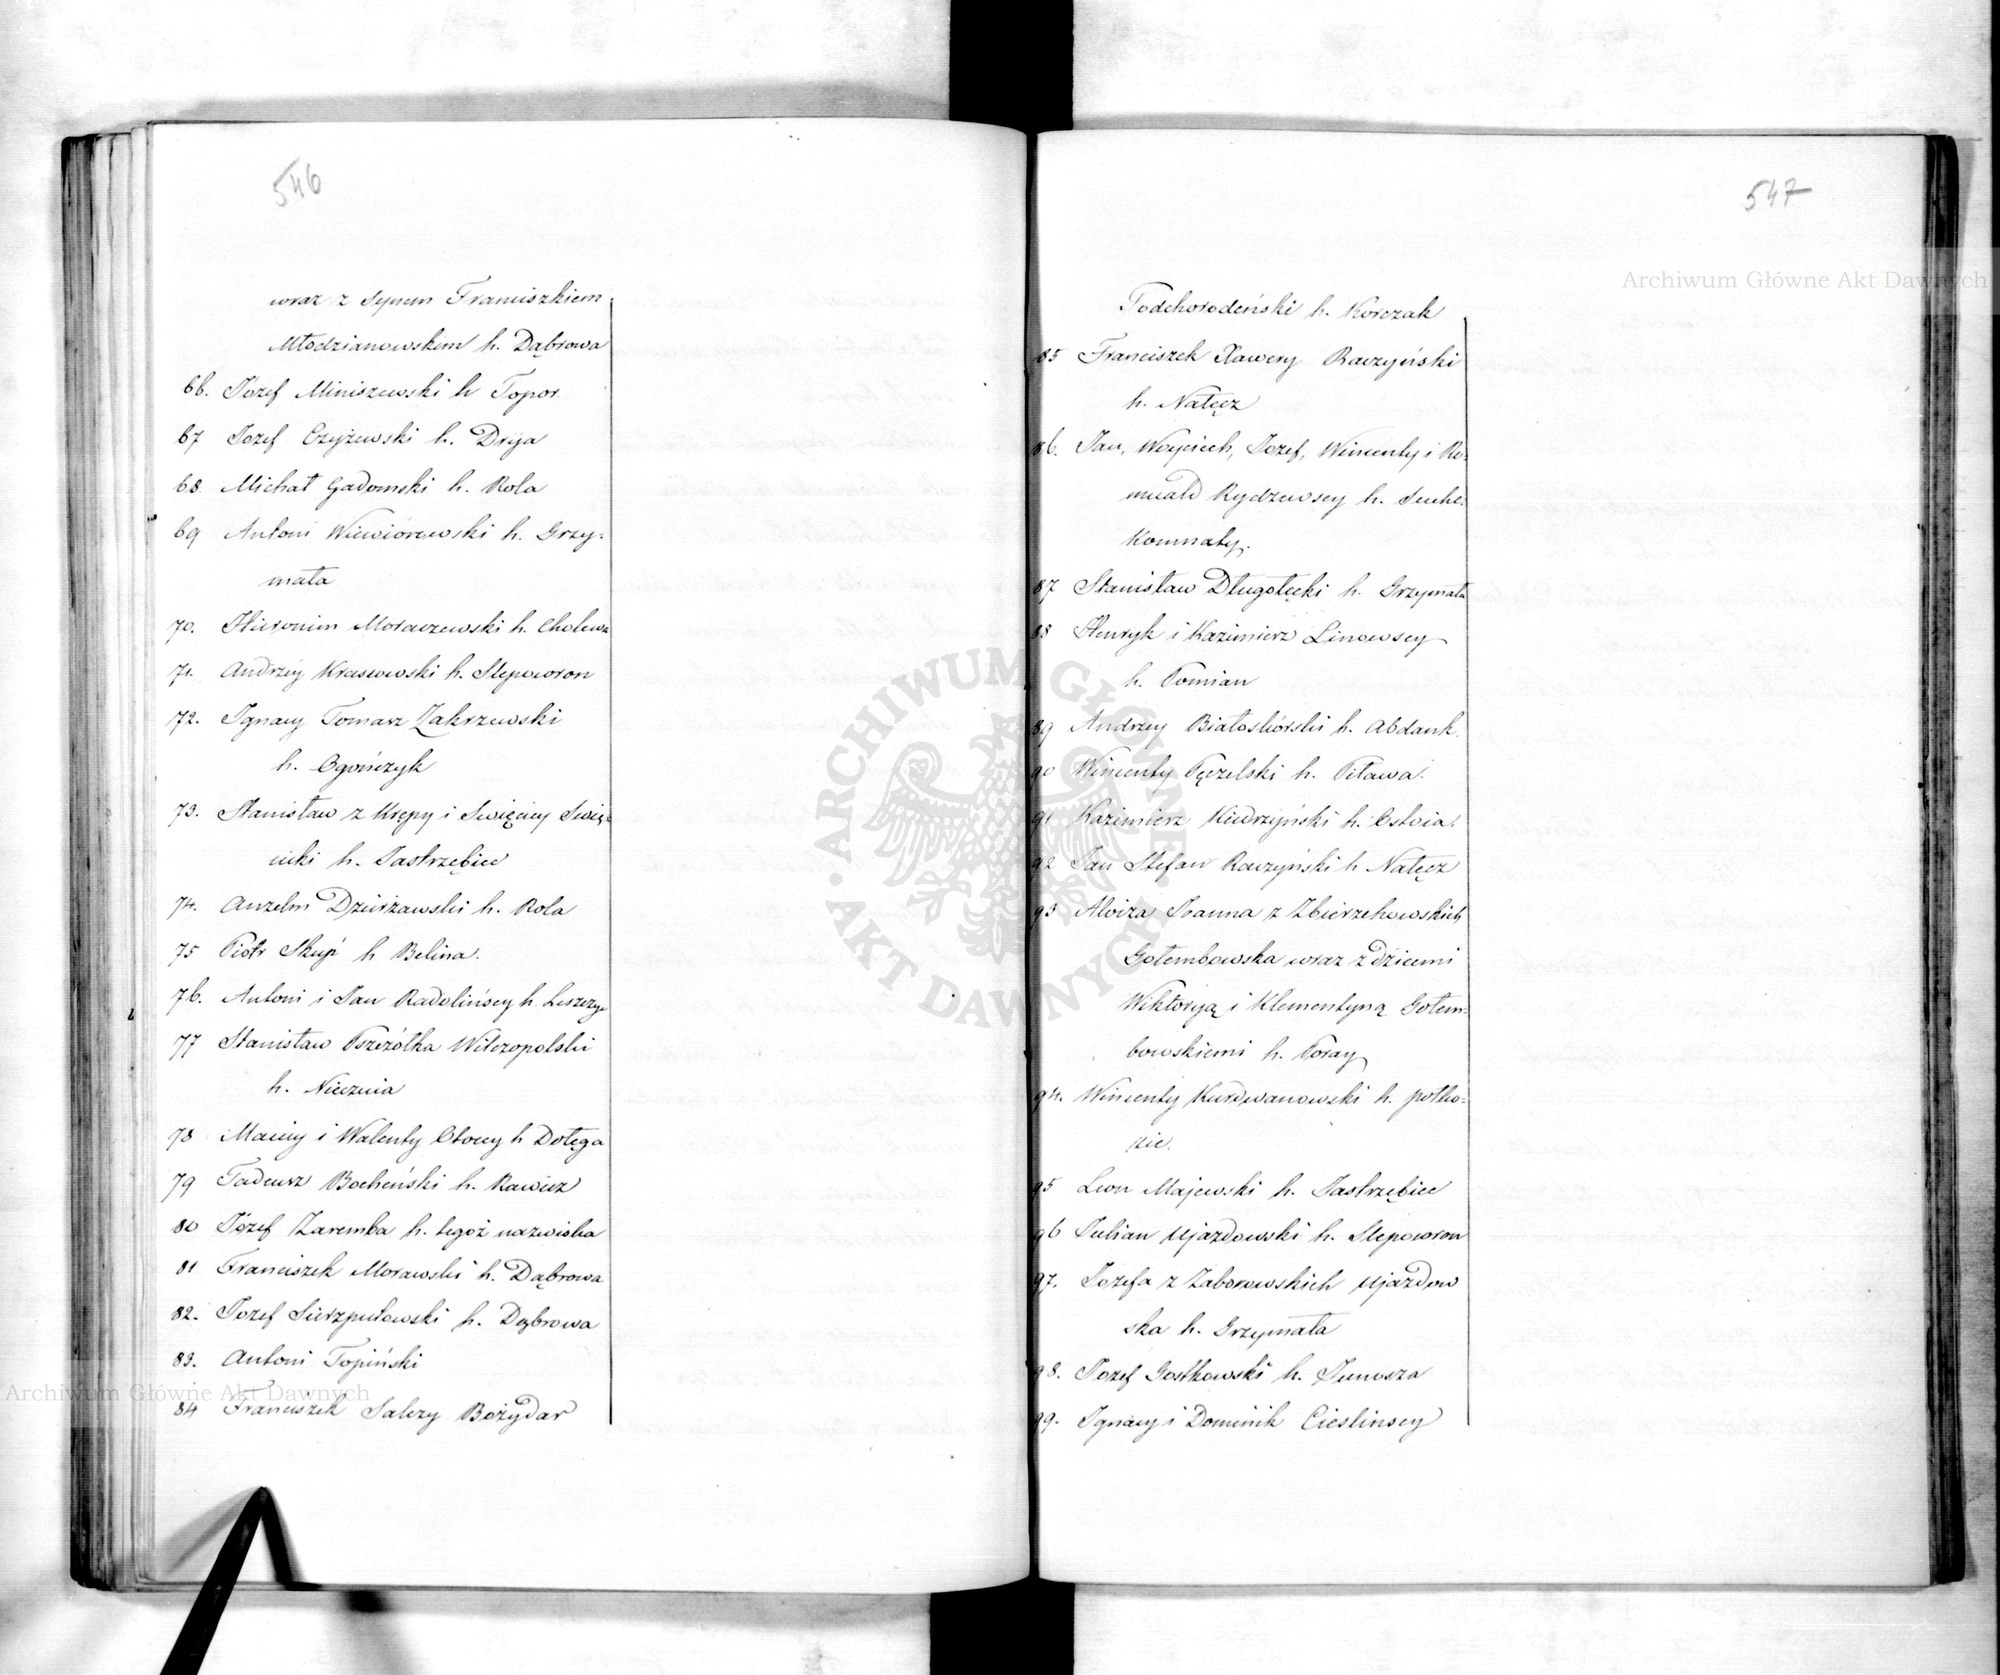 546
wraz z synem Franciszkiem
Młodzianowskim h. Dąbrowa
66. Józef Miniszewski h Topor.
67 Jozef Czyżewski h. Drya
68 Michał Gadomski h. Rola
69 Antoni Wiewiórowski h. Grzy-
mała
70. Hieronim Moraczewski h. Cholewa
71. Andrzey Krassowski h. Slepowron
72. Ignacy Tomasz Zakrzewski
h. Ogończyk
73. Stanisław z Krępy i Swięcicy Swię-
cicki h. Jastrzębiec
74. Anzelm Dzierżawski h. Rola
75 Piotr Skup h Belina.
76. Antoni i Jan Radolińscy h. Leszczyc
77 Stanisław Pszczółka Wilczopolski
h. Nieczuia
78 Maciey i Walenty Otoccy h Dołęga
79 Tadeusz Bocheński h. Rawicz
80 Józef Zaremba h. tegoż nazwiska
81 Franciszek Morawski h. Dąbrowa
82. Jozef Sierzputowski h. Dąbrowa
83. Antoni Topiński
84 Franciszek Salezy Bożydar
547
Podchorodeński h. Korczak
85 Franciszek Xawery Raczyński
h. Nałęcz
86. Jan, Woyciech, Jozef, Wincenty i Ro-
muald Rydzewscy h. Suche-
Komnaty.
87 Stanisław Długołęcki h. Grzymała
88 Henryk i Kazimierz Linowscy
h. Pomian
89 Andrzey Białoskórski h. Abdank.
90 Wincenty Pęczelski h. Pilawa.
91 Kazimierz Kiedrzyński h. Ostoia.
92 Jan Stefan Raczyński h Nałęcz
93 Aloiza Joanna z Zbierzchowskich
Gołembowska wraz z dziećmi
Wiktoryą i Klementyną Gołem-
bowskiemi h. Poray
94. Wincenty Kurdwanowski h. połko-
zic.
95 Leon Majewski h. Jastrzębiec
96 Julian Ujazdowski h. Slepowron
97. Jozefa z Zaborowskich Ujazdow
ska h. Grzymała
98. Jozef Gostkowski h. Junosza
99. Ignacy i Dominik Cieslinscy
Archiwum Główne Akt Dawnych
Archiwum Główne Akt Dawnych
ARCHIWUM GŁÓWNE · AKT DAWNYCH ·